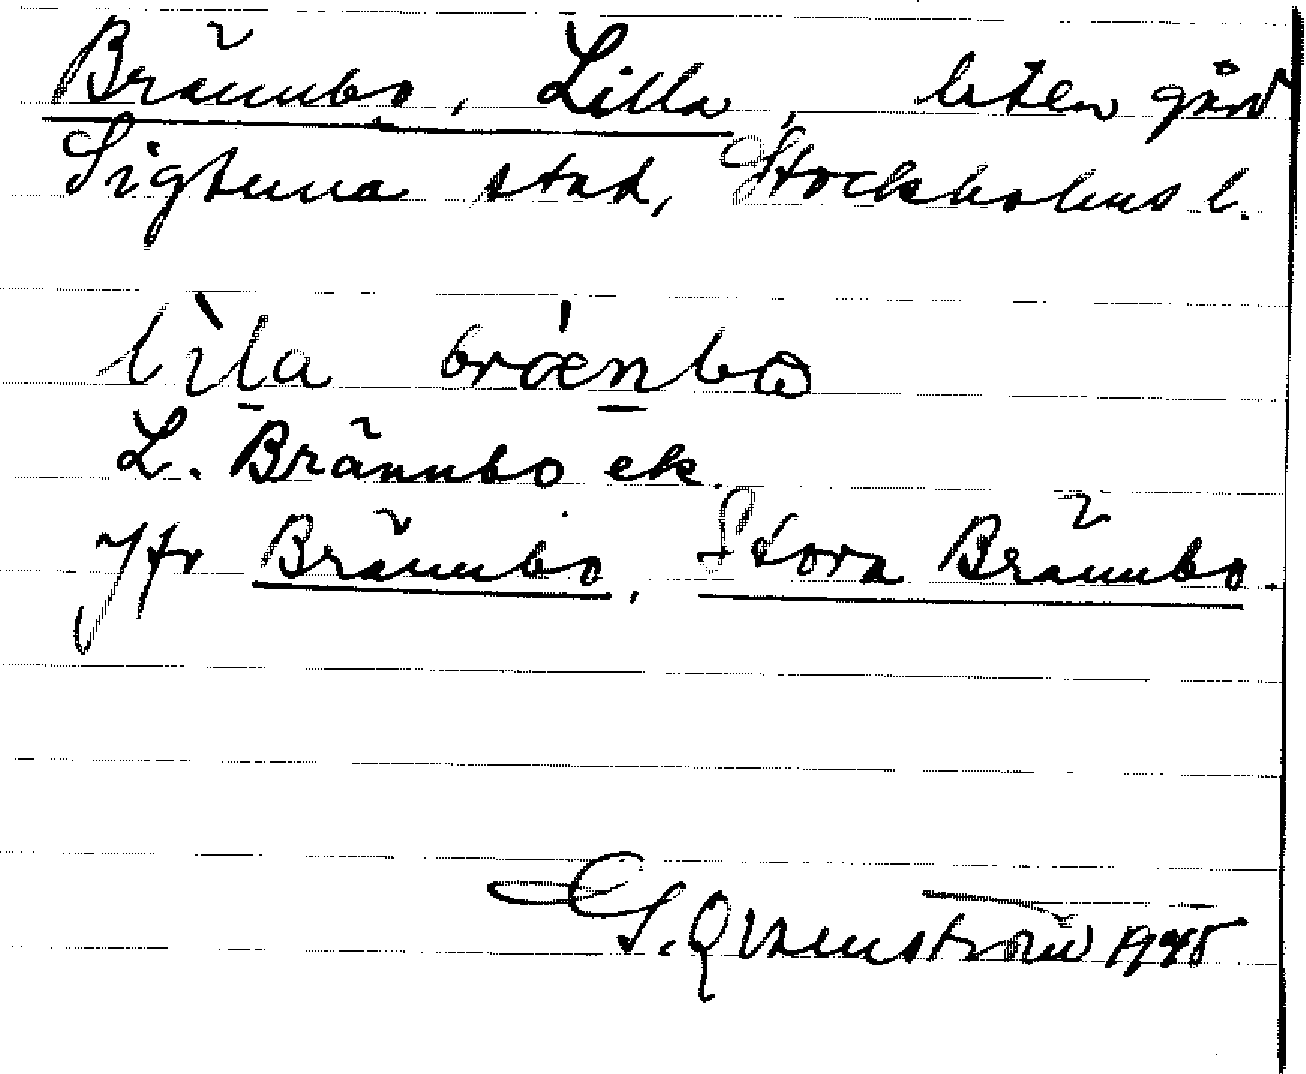 Brännbo, Lilla, liten gård
Sigtuna stad, Stockholms l.
lìl̠a brǽn̠bω
L. Brännbo ek.
Jfr Brännbo, Stora Brännbo.
G. Qvarnström 1945